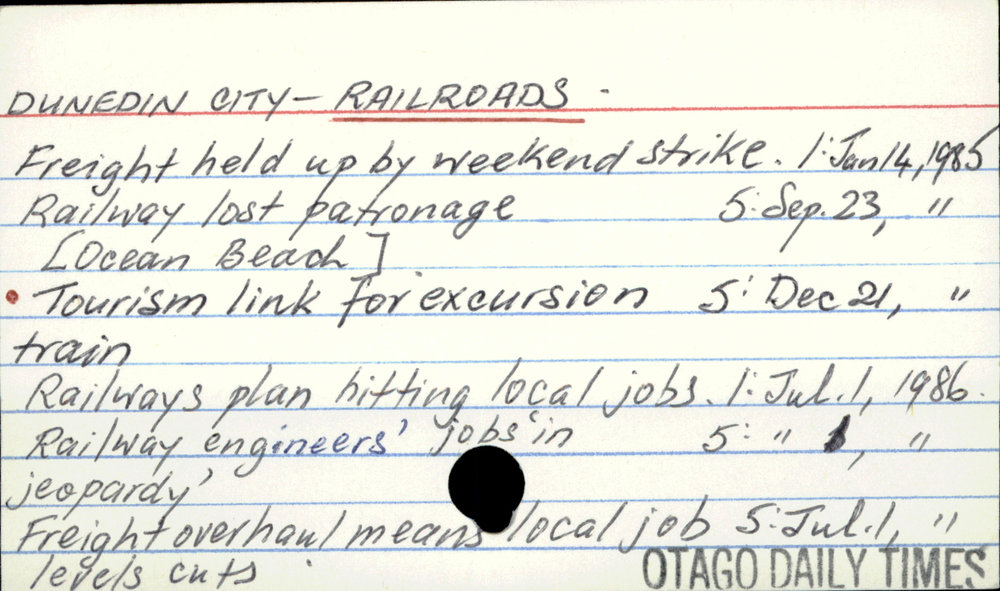 DUNEDIN CITY - RAILROADS.
Freight held up by weekend strike. 1: Jan 14, 1985
Railway lost patronage 5: Sep. 23, "
[Ocean Beach]
• Tourism link for excursion 5: Dec 21, "
train
Railways plan hitting local jobs. 1: Jul. 1, 1986.
Railway engineers' jobs 'in 5: " 1, "
jeopardy'
Freight overhaul means local job 5: Jul. 1, "
levels cuts.
OTAGO DAILY TIMES